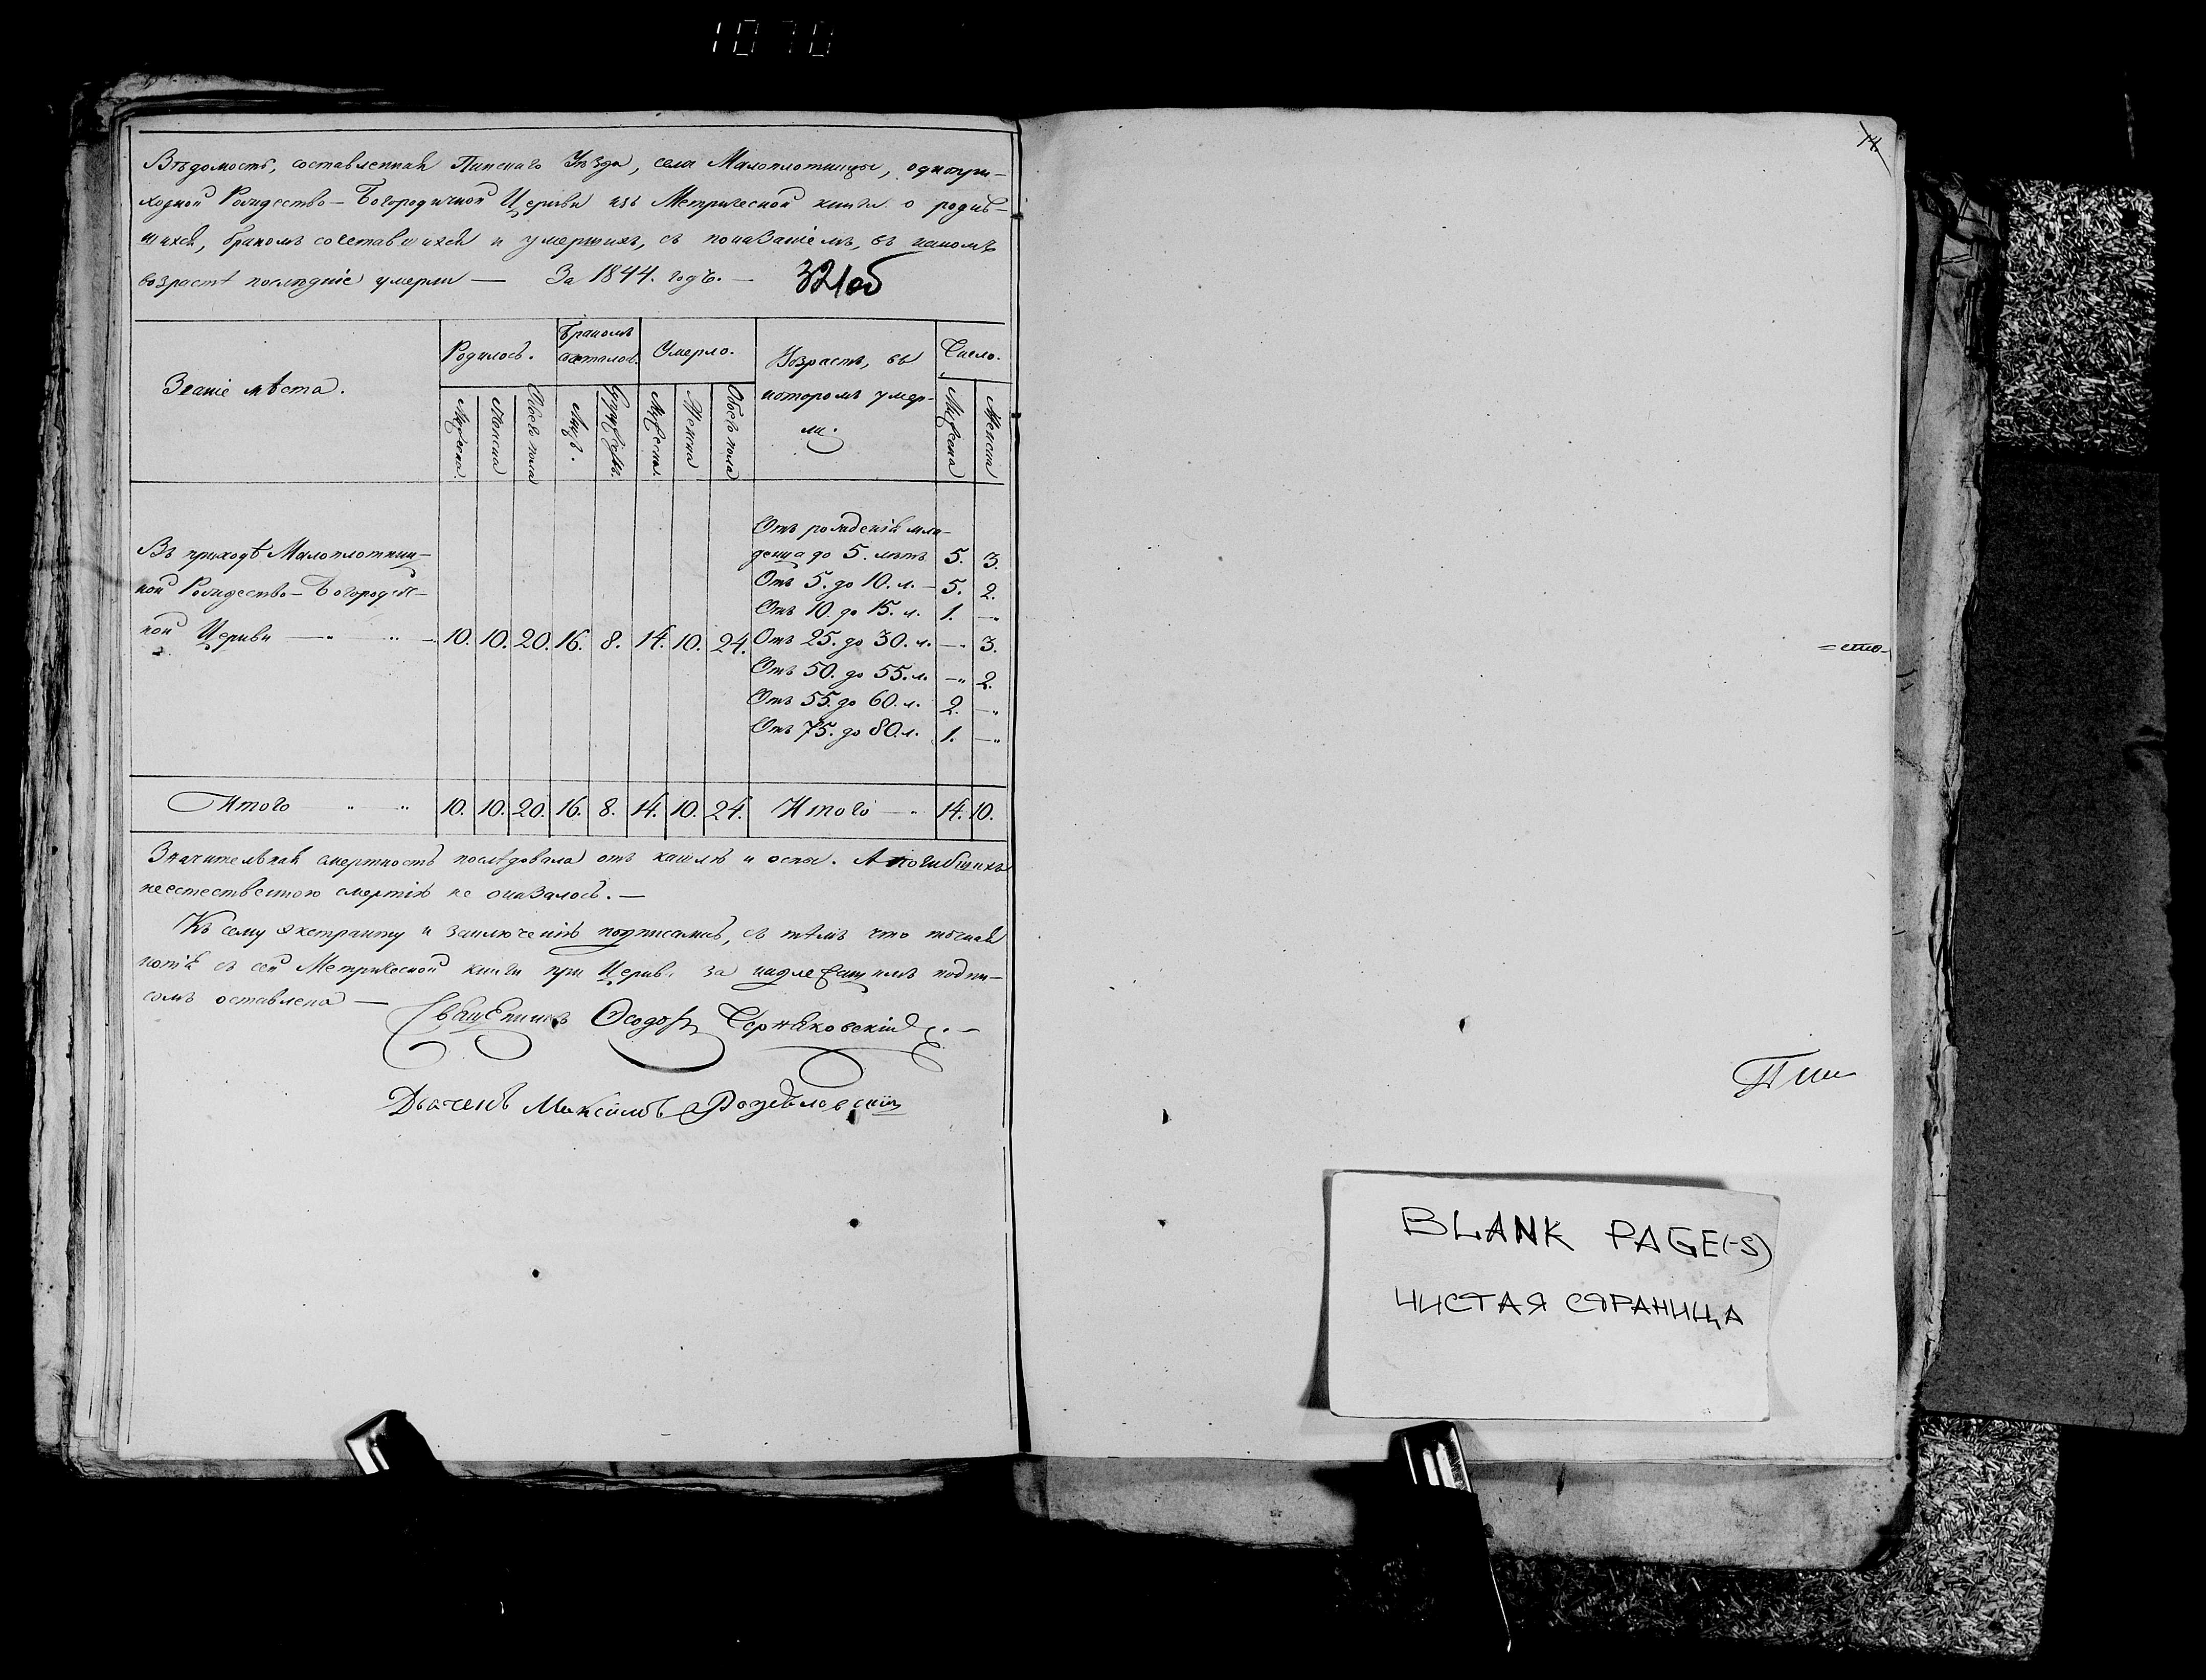 1070
Вѣдомость, составленная Пинскаго Уѣзда, села Малоплотницы, однопри-
ходной Рождество-Богородичной Церкви изъ Метрической книги о родив-
шихся, бракомъ сочетавшихся и умершихъ, съ показаніемъ, въ какомъ
возрастѣ послѣдніе умерли — За 1844. годъ. —
321об
Званіе мѣста.
Родилось.
Бракомъ
Умерло.
Возрастъ, въ
которомъ умер-
ли.
Число.
Мужеска
Женска
Обоего пола
Лицъ.
Мужеска
Женска
Обоего пола
Мужеска
Женска
Въ приходѣ Малоплотниц-
кой Рождество-Богородич-
ной Церкви — „ „ — 10. 10. 20. 16. 8. 14. 10. 24.
Отъ рожденія мла-
денца до 5. лѣтъ 5. 3.
Отъ 5. до 10. л. — 5. 2.
Отъ 10. до 15. л. 1. —„
Отъ 25. до 30. л. —„ 3.
Отъ 50. до 55. л. —„ 2.
Отъ 55. до 60. л. 2. —„
Отъ 75. до 80. л. 1. —„
Итого „ „ 10. 10. 20. 16. 8. 14. 10. 24. Итого — „ 14. 10.
Значительная смертность послѣдовала отъ кашля и оспы. А погибшихъ
неестественною смертію не оказалось. —
Къ сему экстракту и заключенію подписались, съ тѣмъ что точная
копія съ сей Метрической книги при Церкв. за надлежащимъ подпи-
сомъ оставлена —
Священникъ Ѳеодоръ Черняковскій
Дьячекъ Максимъ
14
BLANK PAGE(-S)
ЧИСТАЯ СТРАНИЦА